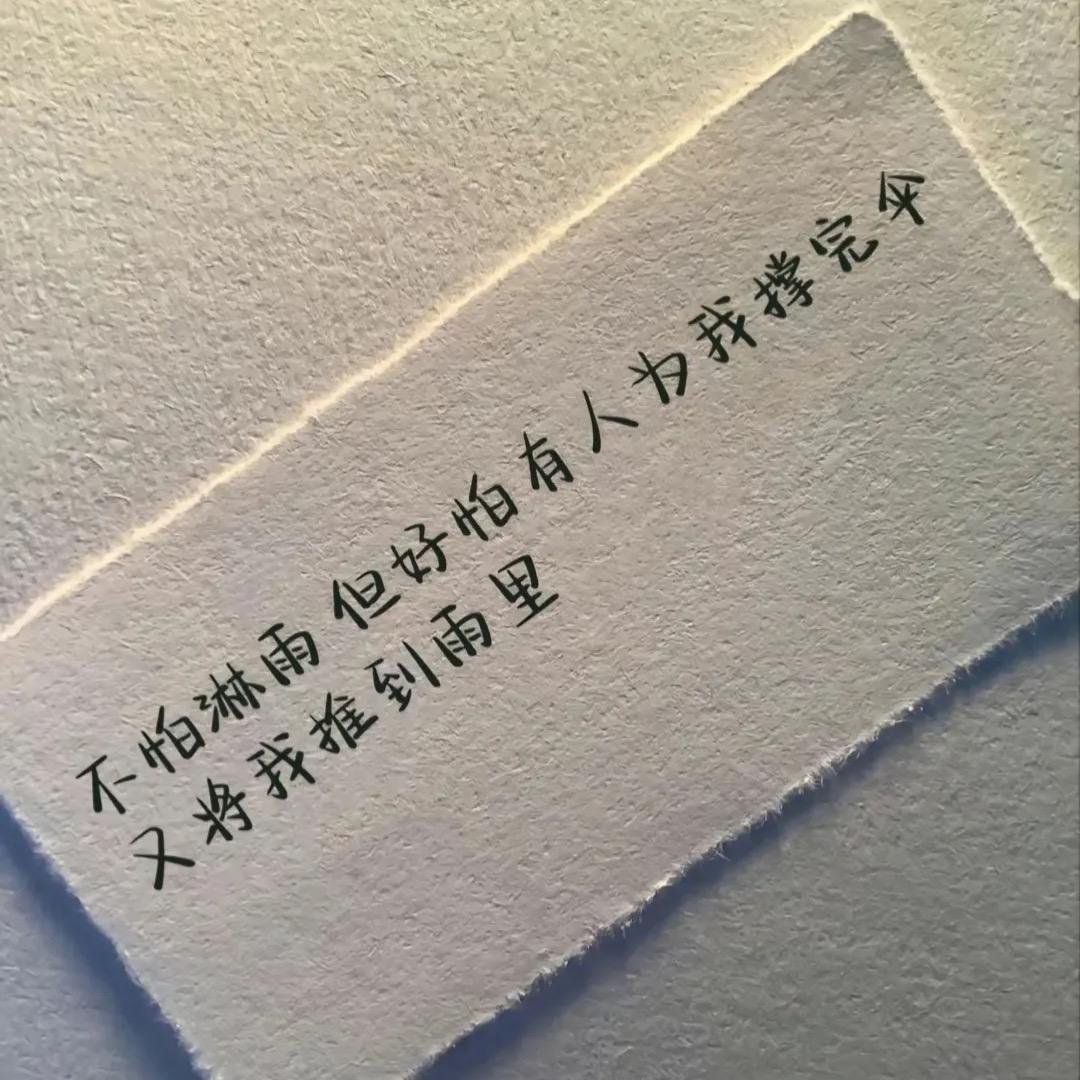 不怕淋雨 但好怕有人为我撑完伞
又将我推到雨里